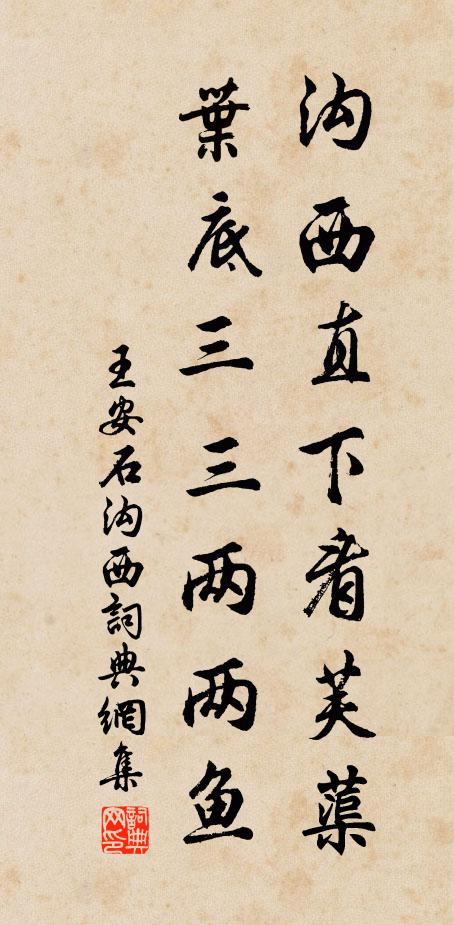 沟西直下看芙蕖
葉底三三两两鱼
王安石沟西詞典網集
詞典网印